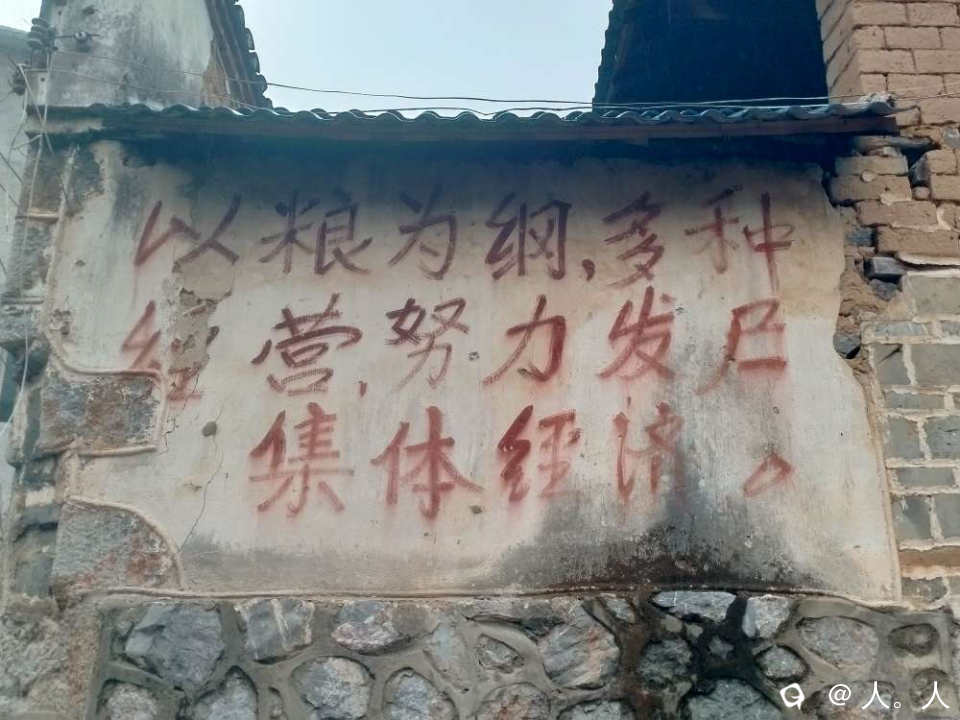 以粮为纲,多种
经营,努力发
集体经济。
@人。人